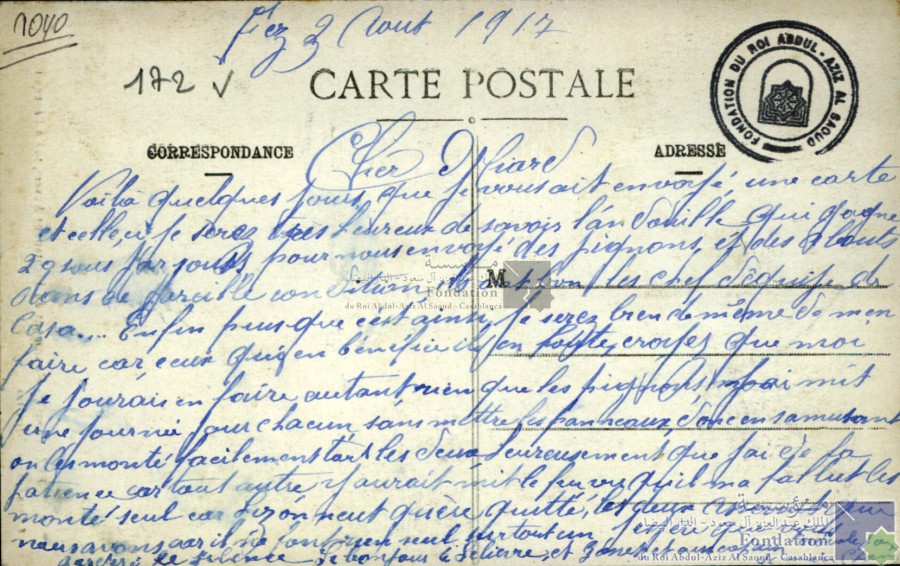 1040
Fez 2 Aout 1917
172 v
CARTE POSTALE
FONDATION DU ROI ABDUL-AZIZ AL SAOUD
CORRESPONDANCE
ADRESSE
Cher
Voilà quelques jours que je vous ait envoyé une carte
et celle ci je serez tres heureux de savoir l'andouille qui gagne
29 sous par jours pour nous envoyé des pignons, et des bouts
dans de pareille condition, ils les chef d'équipe de
M
Casa.... Enfin puisque c'est ainsi, je serez bien de même de m'en
faire car ceux qui en bénéficie ils en croyez que moi
je pourai en faire autant, rien que les pignons j'ai mit
une journée pour chacun sans mettre les panneaux, donc en s'amusant
on les monté facilement les deux heureusement que j'ai de la
patience car tout autre y aurait mit le feu vu qu'il m'a fallut les
monté seul car on neut guère quitté, les deux
nous avons car il ne font rien seul surtout un
garder le silence. Le bonjour
مؤسسة
الملك عبد العزيز آل سعود - الدار البيضاء
Fondation
du Roi Abdul-Aziz Al Saoud - Casablanca
مؤسسة
الملك عبد العزيز آل سعود - الدار البيضاء
Fondation
du Roi Abdul-Aziz Al Saoud - Casablanca